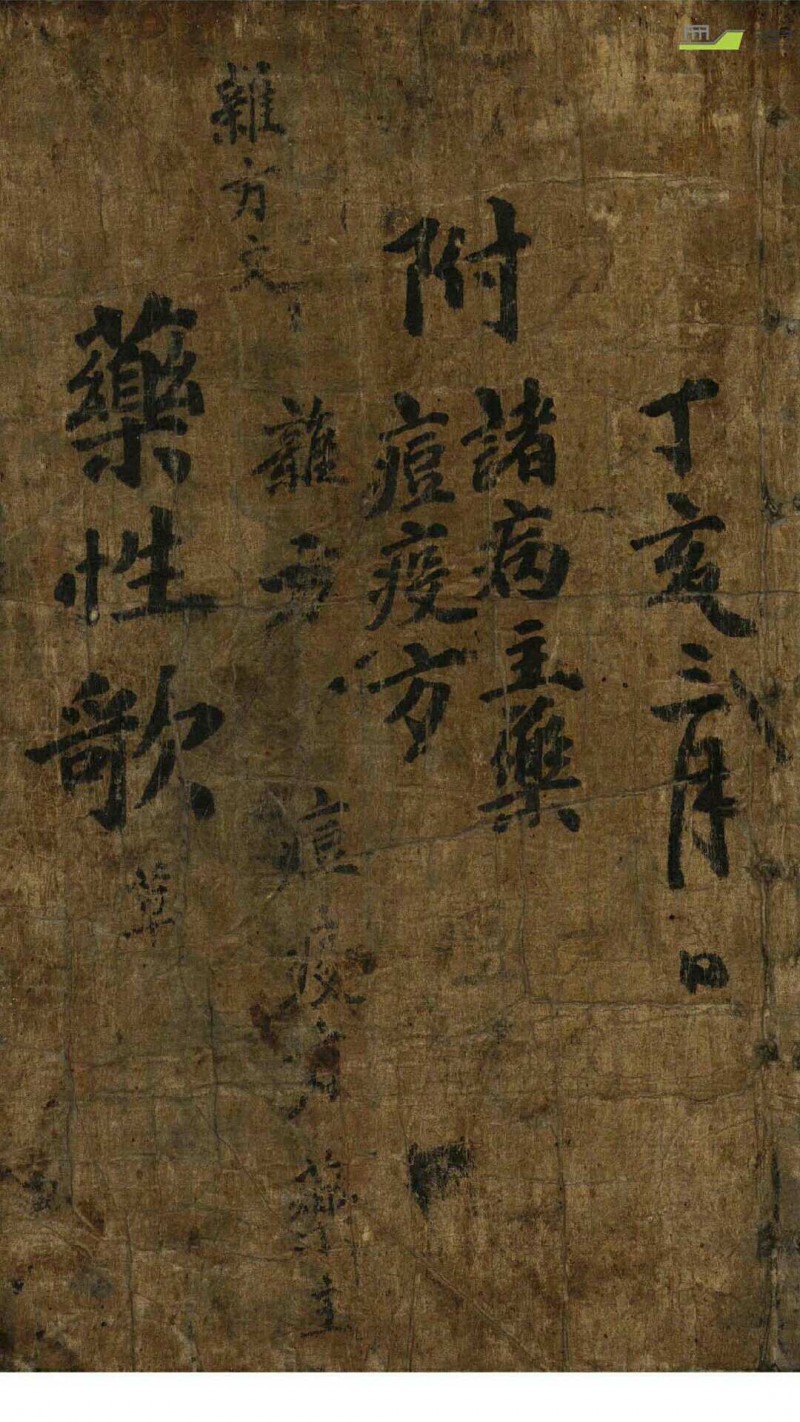 丁亥三月日
附
諸病主藥
痘疫方
雜方
痘疫方藥主
雜方文
藥性歌
草